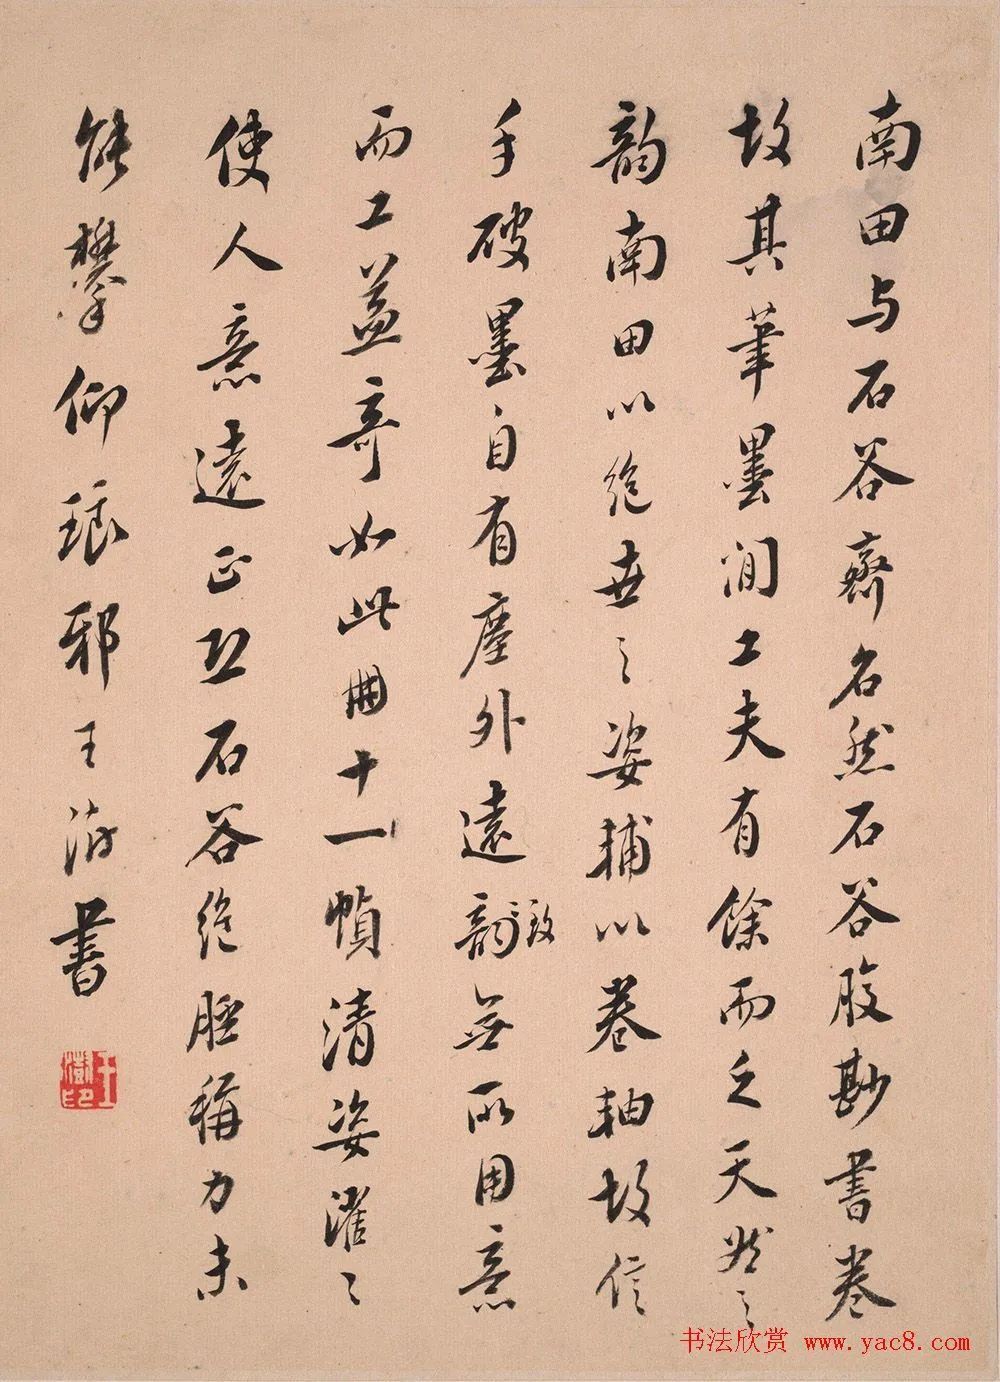 南田与石谷齊名然石谷腹尠書卷
故其筆墨间工夫有餘而乏天然之
韵南田以絶世之姿輔以卷軸故信
手破墨自有塵外遠韵致無所用意
而工益奇如此冊十一幀清姿濯〻
使人意遠正恐石谷絶脛稱力未
能攀仰琅邪王澍書
王澍印
书法欣赏 www.yac8.com